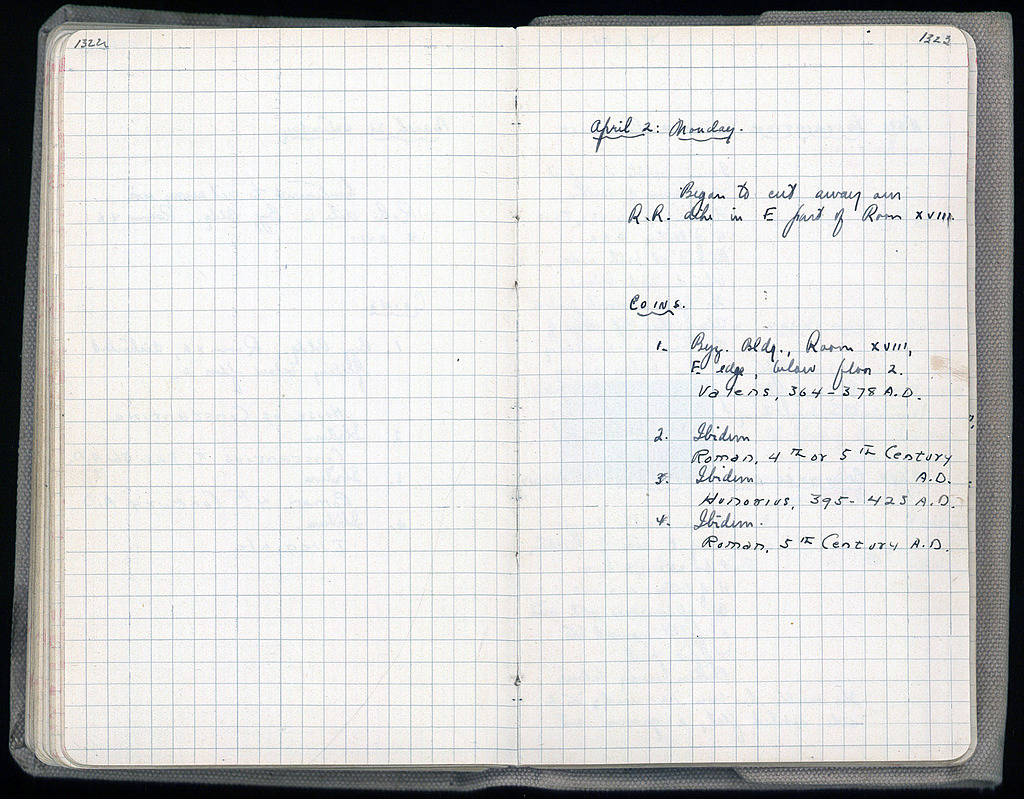 1322
1323
April 2: Monday.
Began to cut away our
R.R. dike in E part of Room XVIII.
COINS.
1. Byz. Bldg., Room XVIII,
E edge, below floor 2.
Valens, 364-378 A.D.
2. Ibidem
Roman, 4TH or 5TH Century
A.D.
3. Ibidem
Honorius, 395-423 A.D.
4. Ibidem.
Roman, 5TH Century A.D.